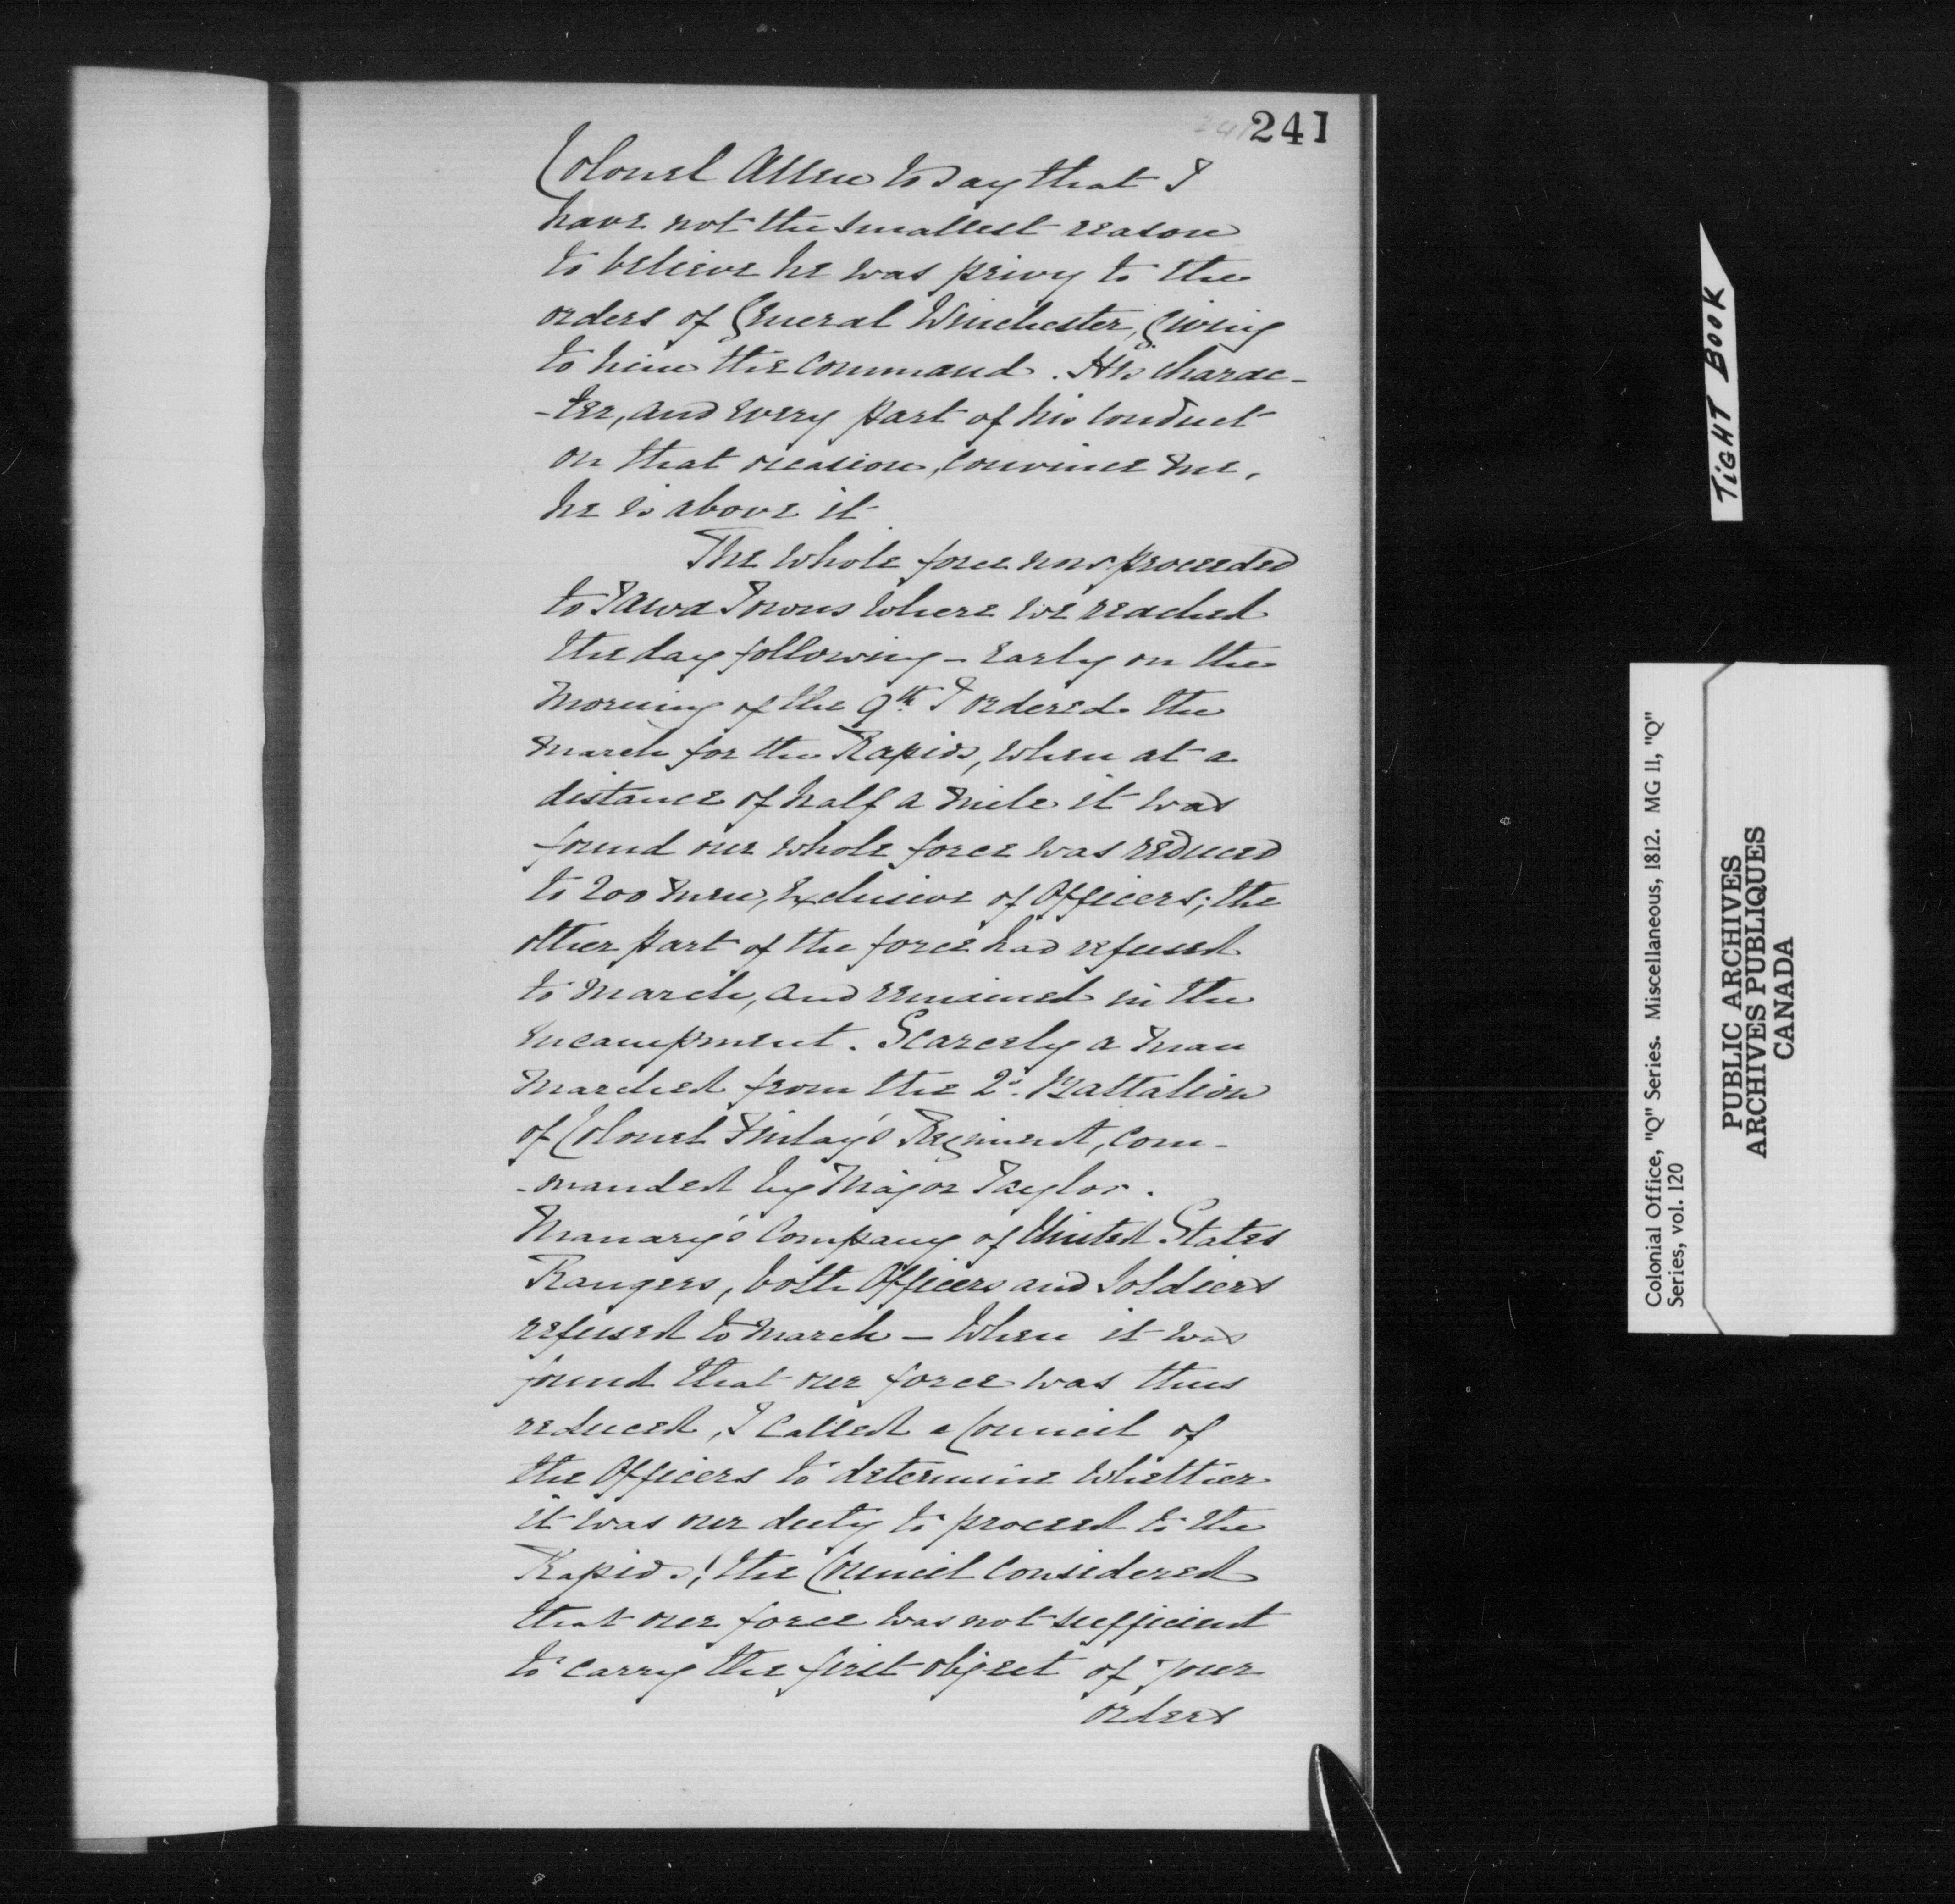 241
Colonel Allen to say that I
have not the smallest reason
to believe he was privy to the
orders of General Winchester, giving
to him the command. His charac-
-ter, and every part of his conduct
on that occasion, convince me,
he is above it
The whole force now proceeded
to Tawa Towns where we reached
the day following - Early on the
morning of the 9th I ordered the
march for the Rapids, when at a
distance of half a mile it was
found our whole force was reduced
to 200 men, exclusive of Officers; the
other part of the force had refused
to march, and remained in the
encampment. Scarcely a man
marched from the 2d. Battalion
of Colonel Finlay's Regiment, com-
-manded by Major Taylor.
Manary's Company of United States
Rangers, both Officers and Soldiers
refused to march — When it was
found that our force was thus
reduced, I called a Council of
the Officers to determine whether
it was our duty to proceed to the
Rapids; the Council considered
that our force was not sufficient
to carry the first object of your
orders
TIGHT BOOK
Colonial Office, "Q" Series. Miscellaneous, 1812. MG 11, "Q"
Series, vol. 120
PUBLIC ARCHIVES
ARCHIVES PUBLIQUES
CANADA